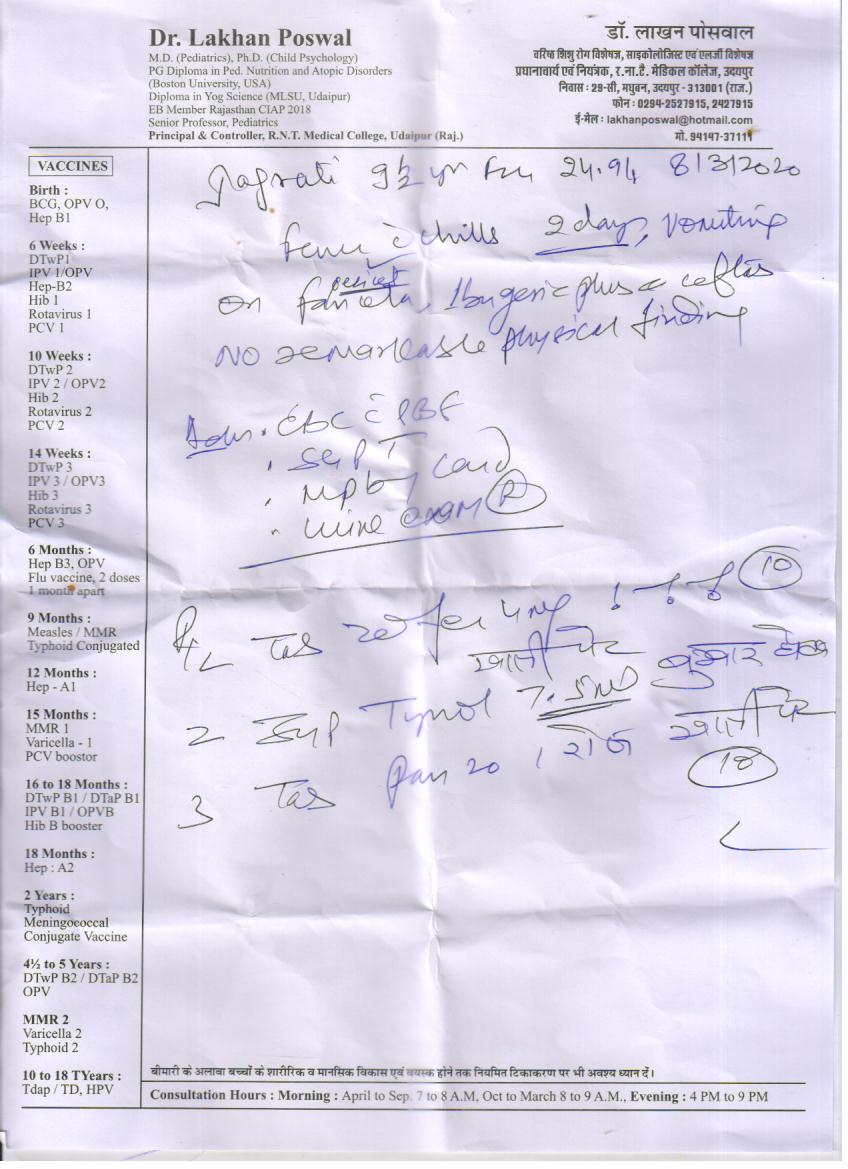 Dr. Lakhan Poswal
M.D. (Pediatrics), Ph.D. (Child Psychology)
PG Diploma in Ped. Nutrition and Atopic Disorders
(Boston University, USA)
Diploma in Yog Science (MLSU, Udaipur)
EB Member Rajasthan CIAP 2018
Senior Professor, Pediatrics
Principal & Controller, R.N.T. Medical College, Udaipur (Raj.)
डॉ. लाखन पोसवाल
वरिष्ठ शिशु रोग विशेषज्ञ, साइकोलोजिस्ट एवं एलर्जी विशेषज्ञ
प्रधानाचार्य एवं नियंत्रक, र.ना.टै. मेडिकल कॉलेज, उदयपुर
निवास : 29-सी, मधुबन, उदयपुर - 313001 (राज.)
फोन : 0294-2527915, 2427915
ई-मेल : lakhanposwal@hotmail.com
मो. 94147-37111
VACCINES
Birth :
BCG, OPV O,
Hep B1
6 Weeks :
DTwP1
IPV 1/OPV
Hep-B2
Hib 1
Rotavirus 1
PCV 1
10 Weeks :
DTwP 2
IPV 2 / OPV2
Hib 2
Rotavirus 2
PCV 2
14 Weeks :
DTwP 3
IPV 3 / OPV3
Hib 3
Rotavirus 3
PCV 3
6 Months :
Hep B3, OPV
Flu vaccine, 2 doses
1 month apart
9 Months :
Measles / MMR
Typhoid Conjugated
12 Months :
Hep - A1
15 Months :
MMR 1
Varicella - 1
PCV boostor
16 to 18 Months :
DTwP B1 / DTaP B1
IPV B1 / OPVB
Hib B booster
18 Months :
Hep : A2
2 Years :
Typhoid
Meningococcal
Conjugate Vaccine
4½ to 5 Years :
DTwP B2 / DTaP B2
OPV
MMR 2
Varicella 2
Typhoid 2
10 to 18 TYears :
Tdap / TD, HPV
9½ yr 24.94 8/3/2020
fever c̄ chills 2 days, Vomiting
on Ibugesic plus c̄
NO remarkable physical finding
Adv. CBC c̄ PBF
. SGPT
. MP by Card
. Urine exam (R)
Tab 4mg 10
खाली पेट बुखार
2 Syp 7.5ml
3 Tab Pan 20 1 रोज खाली पेट
10
बीमारी के अलावा बच्चों के शारीरिक व मानसिक विकास एवं वयस्क होने तक नियमित टिकाकरण पर भी अवश्य ध्यान दें।
Consultation Hours : Morning : April to Sep. 7 to 8 A.M, Oct to March 8 to 9 A.M., Evening : 4 PM to 9 PM